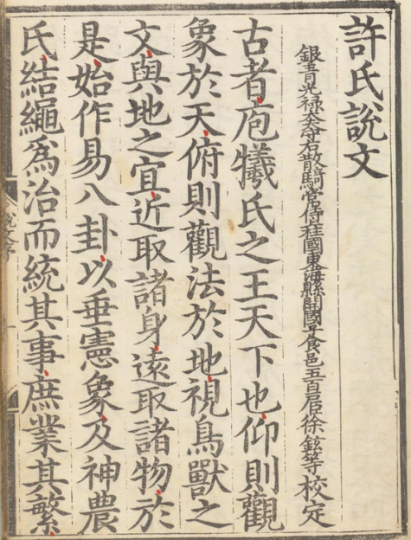 許氏說文
銀青光禄大夫守右散騎常侍上柱國東海縣開國子食邑五百户臣徐鉉等校定
古者庖犧氏之王天下也仰則觀
象於天俯則觀法於地視鳥獸之
文與地之宜近取諸身遠取諸物於
是始作易八卦以垂憲象及神農
氏結繩為治而統其事庶業其繁